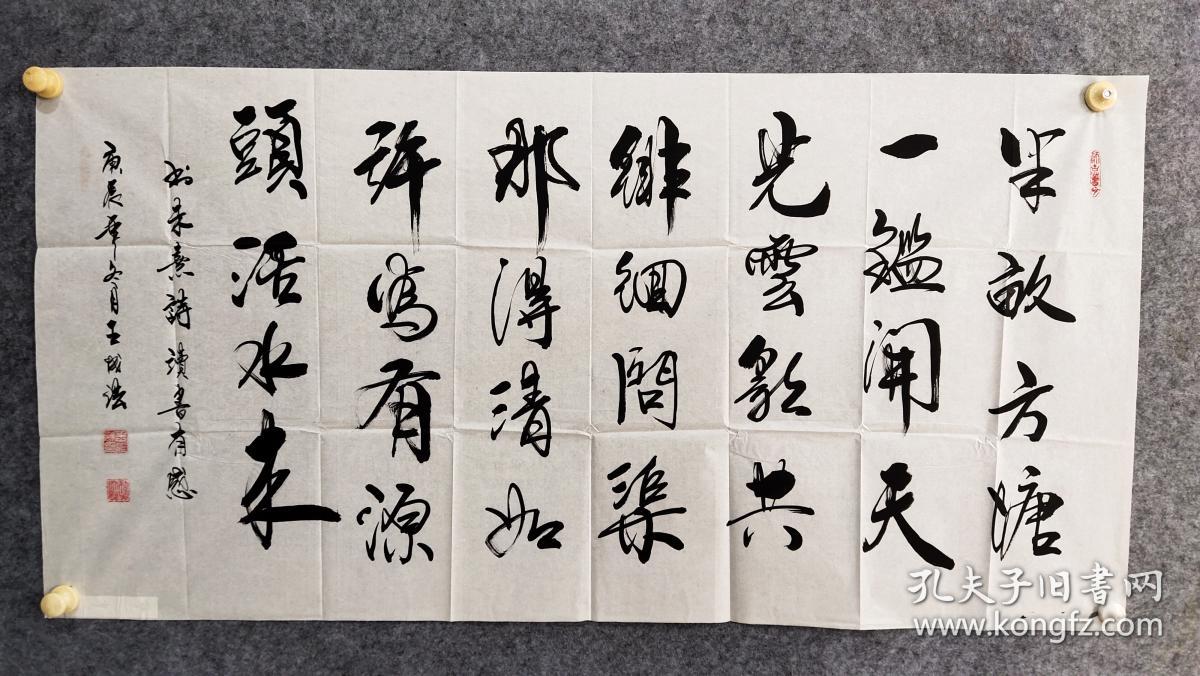 半畝方塘
一鑑開天
光雲影共
徘徊問渠
那得清如
許為有源
頭活水来
書朱熹詩讀書有感
庚辰年冬月王成法
孔夫子旧书网
www.kongfz.com